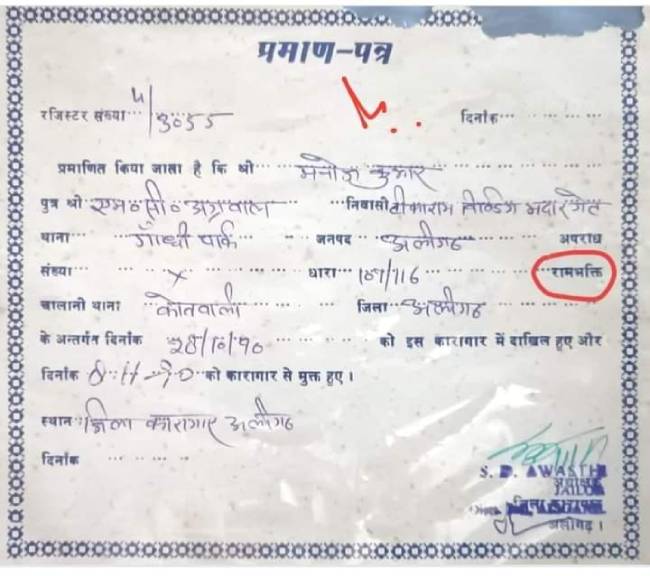 प्रमाण-पत्र
रजिस्टर संख्या 4/3055 दिनांक
प्रमाणित किया जाता है कि श्री मनोज कुमार
पुत्र श्री एम॰ सी॰ अग्रवाल निवासी टीकाराम बिल्डिंग मदारगेट
थाना गाँधी पार्क जनपद अलीगढ अपराध
संख्या × धारा 107/116 रामभक्ति
चालानी थाना कोतवाली जिला अलीगढ
के अन्तर्गत दिनांक 28/10/90 को इस कारागार में दाखिल हुए और
दिनांक को कारागार से मुक्त हुए।
स्थान जिला कारागार अलीगढ
दिनांक
S. D. AWASTHI
JAILOR
अलीगढ़।